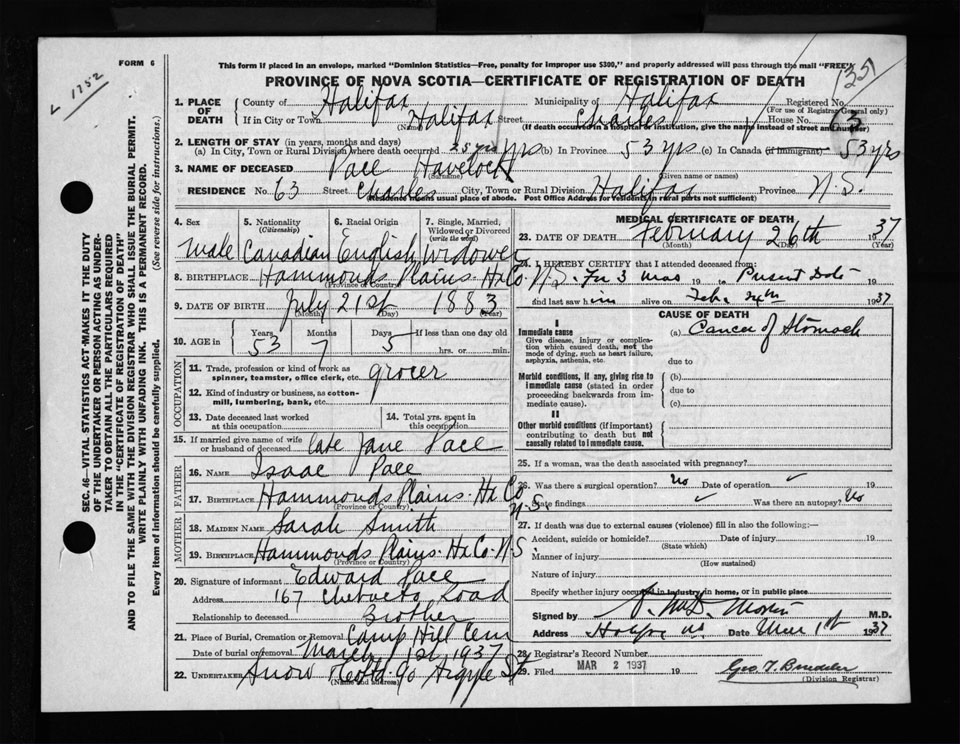 L 1752
FORM 6
This form if placed in an envelope, marked "Dominion Statistics—Free, penalty for improper use $300," and properly addressed will pass through the mail "FREE"
PROVINCE OF NOVA SCOTIA—CERTIFICATE OF REGISTRATION OF DEATH
351
1. PLACE OF DEATH
County of Halifax Municipality of Halifax Registered No.
(For use of Registrar General only)
If in City or Town Halifax Street Charles House No. 63
(Name) (If death occurred in a hospital or institution, give the name instead of street and number)
2. LENGTH OF STAY (in years, months and days)
(a) In City, Town or Rural Division where death occurred 25 yrs yrs (b) In Province 53 yrs (c) In Canada (if immigrant) 53 yrs
3. NAME OF DECEASED Pace Havelock
(Surname) (Given name or names)
RESIDENCE No. 63 Street Charles City, Town or Rural Division Halifax Province N.S.
(Residence means usual place of abode. Post Office Address for residents in rural parts not sufficient)
4. Sex
Male
5. Nationality
(Citizenship)
Canadian
6. Racial Origin
English
7. Single, Married, Widowed or Divorced
(write the word)
Widower
8. BIRTHPLACE Hammonds Plains Hx Co N.S.
(Province or Country)
9. DATE OF BIRTH July 21st 1883
(Month) (Day) (Year)
10. AGE in
Years Months Days If less than one day old
53 7 5 hrs. or min.
OCCUPATION
11. Trade, profession or kind of work as spinner, teamster, office clerk, etc. grocer
12. Kind of industry or business, as cotton-mill, lumbering, bank, etc.
13. Date deceased last worked at this occupation
14. Total yrs. spent in this occupation
15. If married give name of wife or husband of deceased late Jane Pace
FATHER
16. NAME Isaac Pace
17. BIRTHPLACE Hammonds Plains Hx Co N.S.
(Province or Country)
MOTHER
18. MAIDEN NAME Sarah Smith
19. BIRTHPLACE Hammonds Plains Hx Co. N.S.
(Province or Country)
20. Signature of informant Edward Pace
Address 167 Chebucto Road
Relationship to deceased Brother
21. Place of Burial, Cremation or Removal Camp Hill Cem
Date of burial or removal March 1st 1937
22. UNDERTAKER Snow & Co Ltd. 90 Argyle St
(Name and address)
MEDICAL CERTIFICATE OF DEATH
23. DATE OF DEATH February 26th 1937
(Month) (Day) (Year)
24. I HEREBY CERTIFY that I attended deceased from:
For 3 mos 19 to Present Date 19
and last saw him alive on Feb. 24th 1937
CAUSE OF DEATH
I
Immediate cause
Give disease, injury or complication which caused death, not the mode of dying, such as heart failure, asphyxia, asthenia, etc.
(a) Cancer of Stomach
due to
Morbid conditions, if any, giving rise to immediate cause (stated in order proceeding backwards from immediate cause).
(b)
due to
(c)
II
Other morbid conditions (if important) contributing to death but not causally related to immediate cause.
25. If a woman, was the death associated with pregnancy?
26. Was there a surgical operation? No Date of operation 19
State findings Was there an autopsy? No
27. If death was due to external causes (violence) fill in also the following:—
Accident, suicide or homicide? Date of injury 19
(State which)
Manner of injury
(How sustained)
Nature of injury
Specify whether injury occurred in industry, in home, or in public place
Signed by M.D.
Address Halifax NS Date Mar 1st 1937
28. Registrar's Record Number
29. Filed MAR 2 1937 19
(Division Registrar)
SEC. 46—VITAL STATISTICS ACT MAKES IT THE DUTY
OF THE UNDERTAKER OR PERSON ACTING AS UNDER-
TAKER TO OBTAIN ALL THE PARTICULARS REQUIRED
IN THE "CERTIFICATE OF REGISTRATION OF DEATH"
AND TO FILE THE SAME WITH THE DIVISION REGISTRAR WHO SHALL ISSUE THE BURIAL PERMIT.
WRITE PLAINLY WITH UNFADING INK. THIS IS A PERMANENT RECORD.
Every item of Information should be carefully supplied. (See reverse side for instructions.)